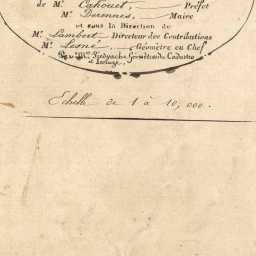 de Mr. Cahouet, Préfet
Mr. Derennes, Maire
et sous la Direction de
Mr. Lambert Directeur des Contributions
Mr. Lesné Géomètre en Chef
Par Mr. Géomètre du Cadastre
Echelle de 1 à 10,000.